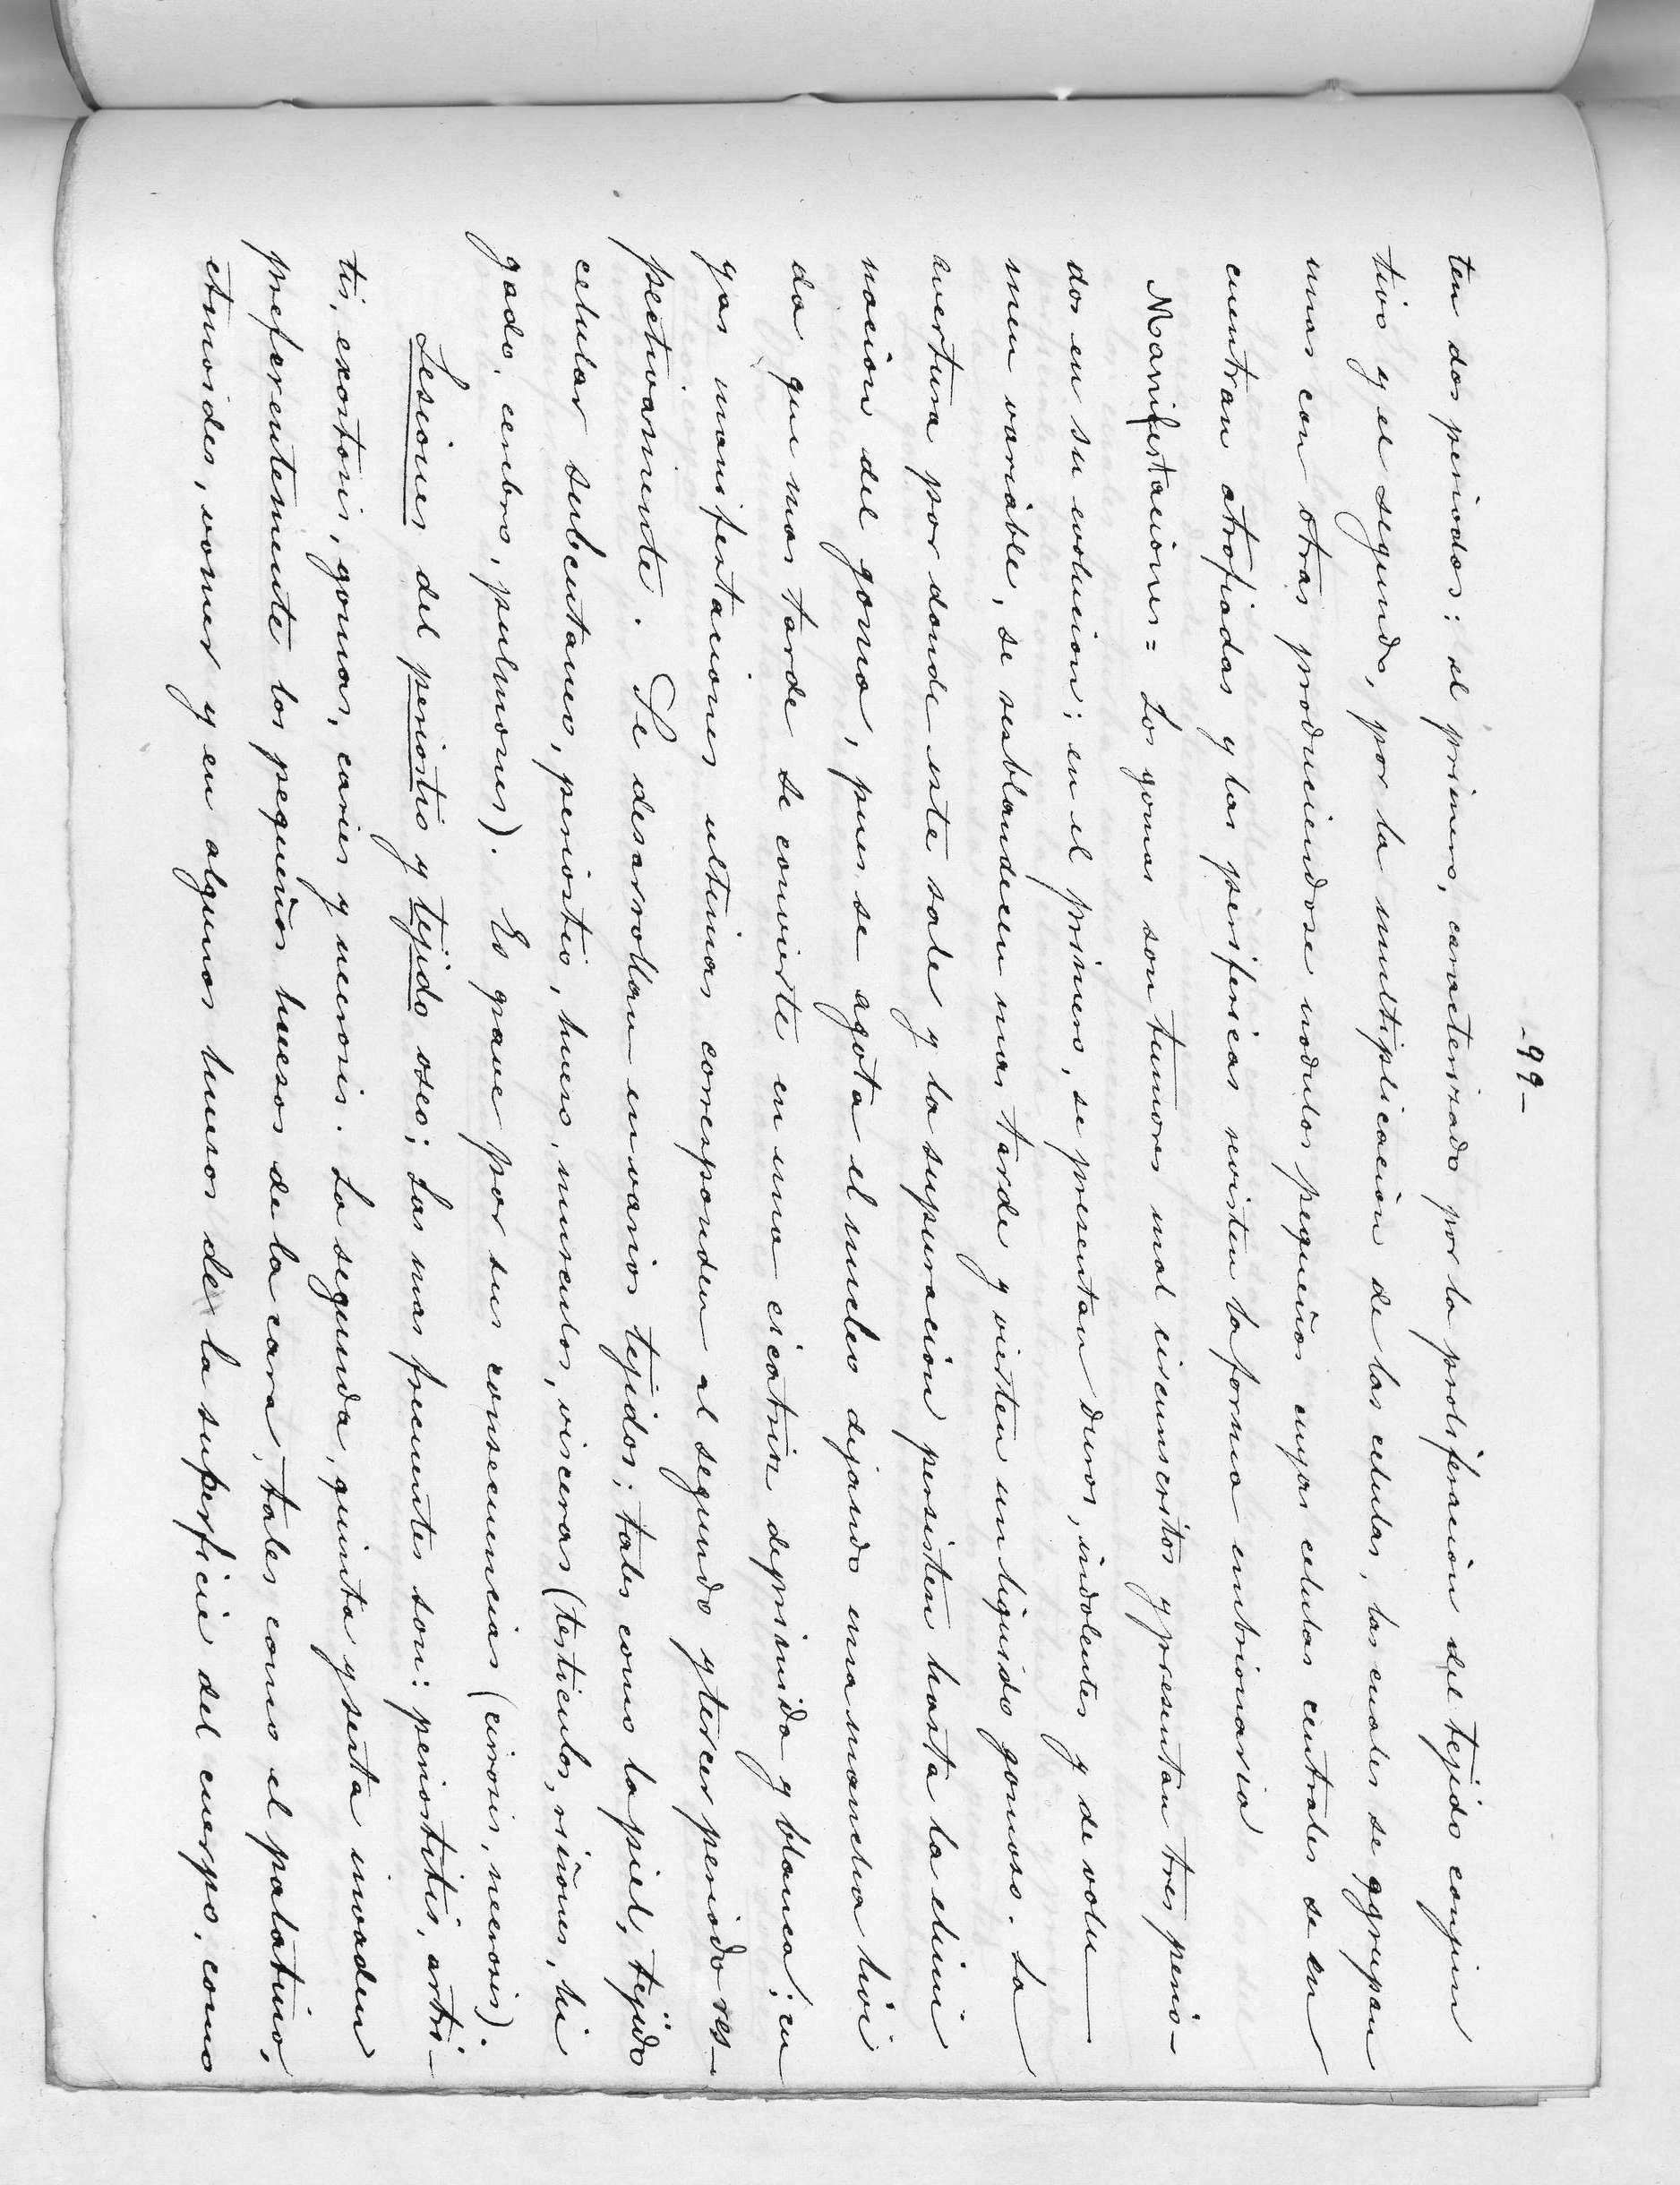 -99-
ten dos periodos: el primero, caracterizado por la proliferacion del tejido conjun
tivo y el segundo, por la multiplicacion de las celulas, las cuales se agrupan
unas con otras produciendose nodulos pequeños cuyas celulas centrales se en
cuentran atrofiadas y las perifericas revisten la forma embrionaria
Manifestaciones = Los gomas son tumores mal circunscritos y presentan tres perio-
dos en su evolucion; en el primero, se presentan duros, indolentes y de volu
men variable, se reblandecen mas tarde y vierten un liquido gomoso. La
avertura por donde este sale y la supuracion persisten hasta la elimi
nacion del goma, pues se agota el nucleo dejando una mancha livi
da que mas tarde se convierte en una cicatriz deprimida y blanca; cu
yas manifestaciones ultimas corresponden al segundo y tercer periodo res-
pectivamente. Se desarrollan en varios tejidos; tales como la piel, tejido
celular subcutaneo, periostio, hueso, musculos, visceras (testiculos, riñones, hi
gado, cerebro, pulmones). Es grave por sus consecuencias (cirrosis, necrosis).
Lesiones del periostio y tejido oseo; Las mas frecuentes son: periostitis, artri-
tis, exostosis, gomas, caries y necrosis. La segunda, quinta y sesta invaden
preferentemente los pequeños huesos de la cara, tales como el palatino,
etmoides, vomer y en algunos huesos de la superficie del cuerpo, como